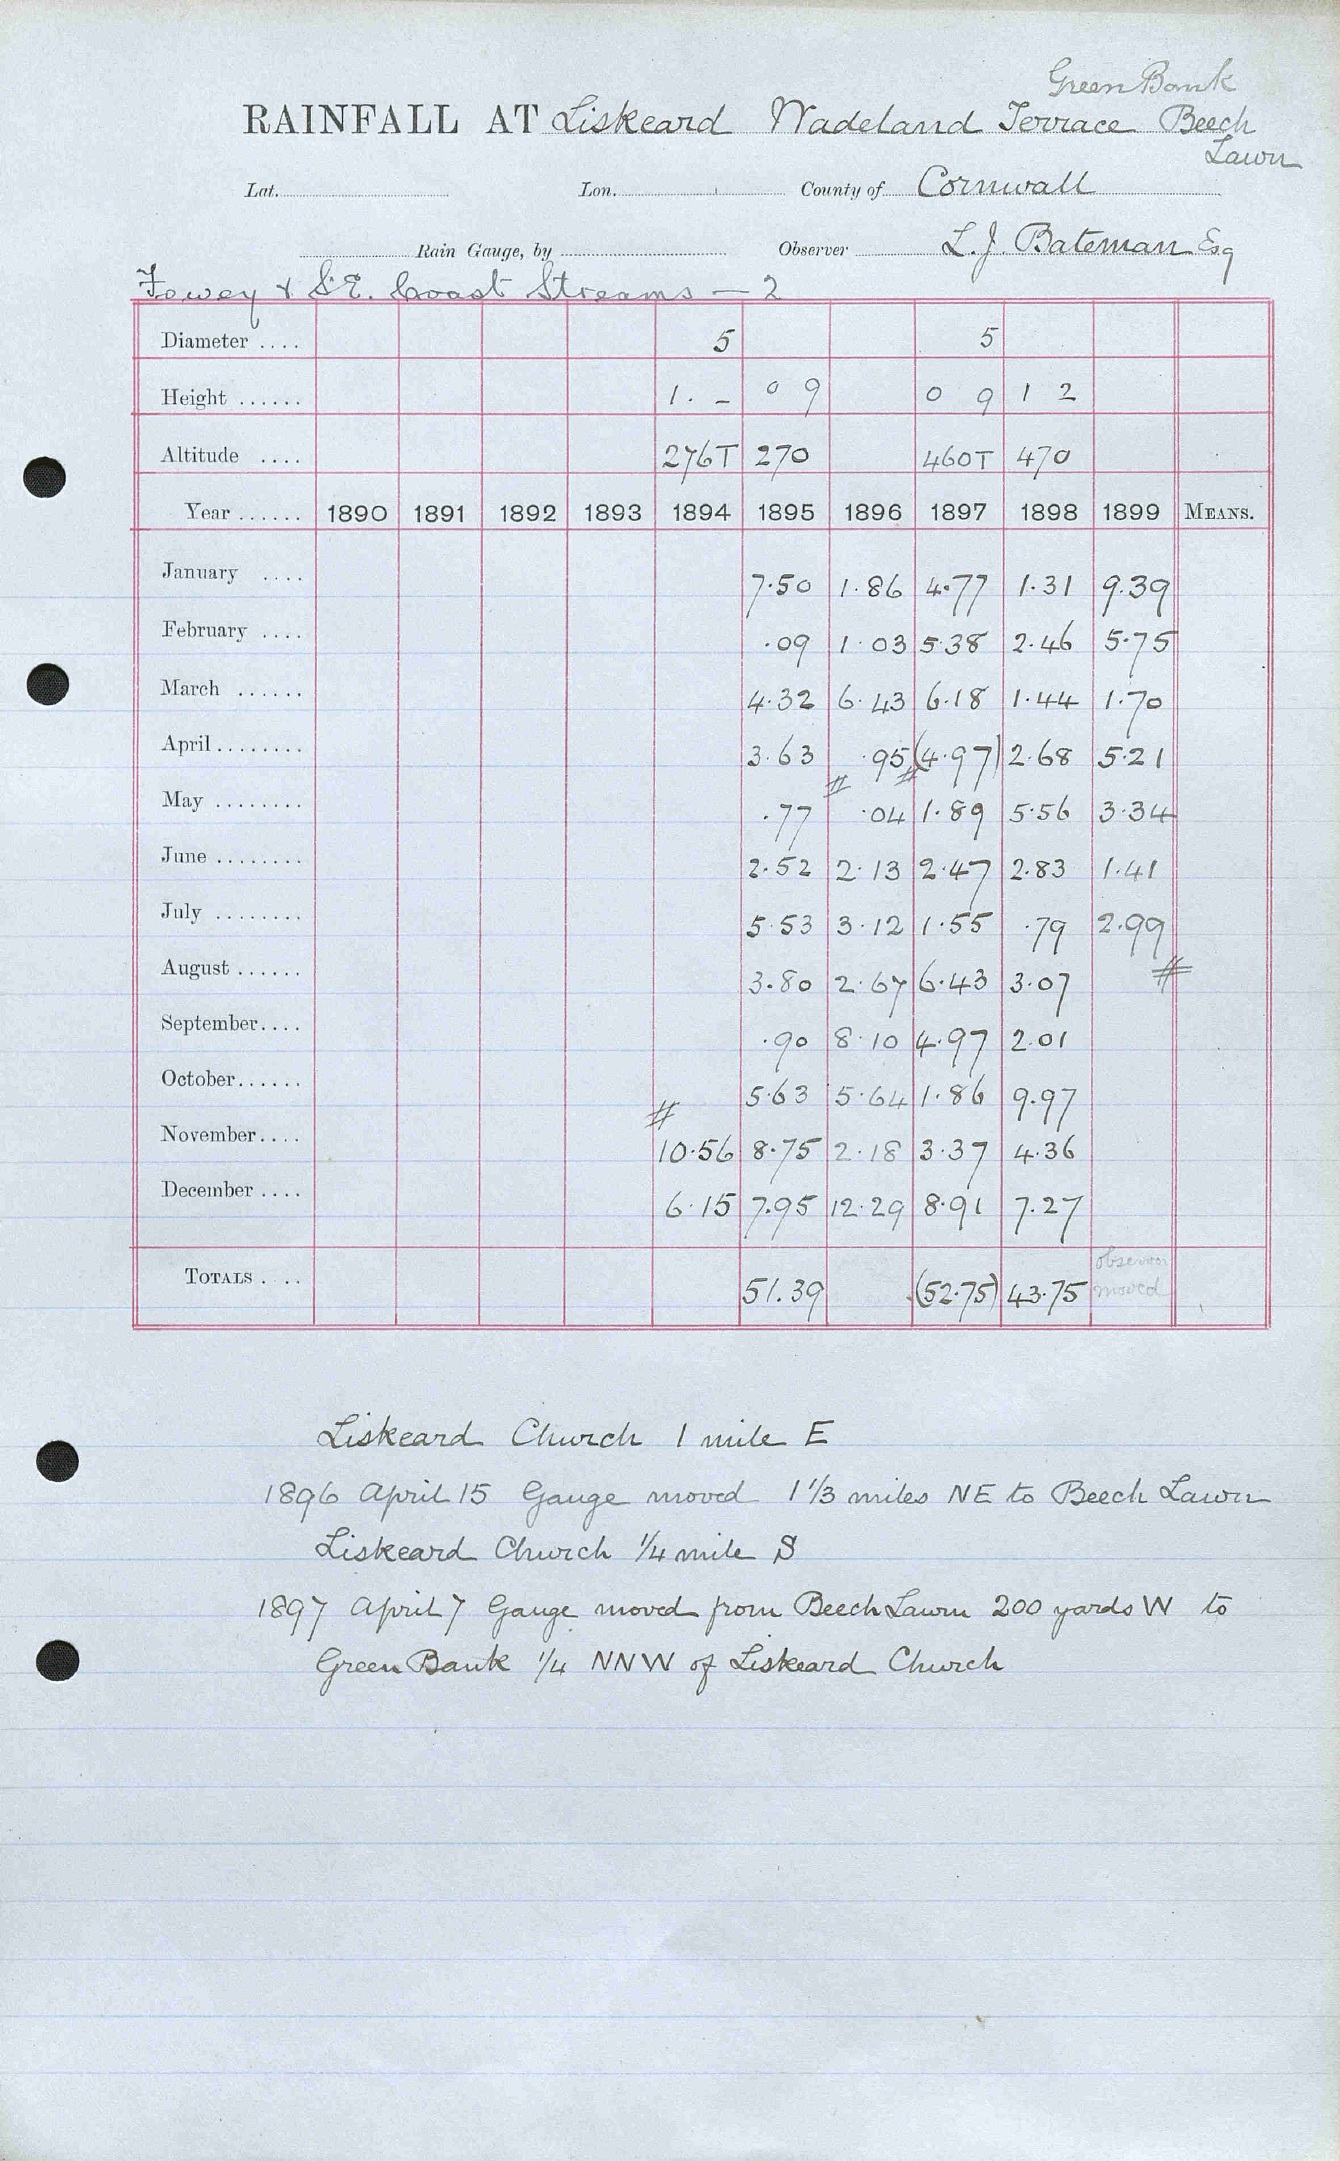 Green Bank
RAINFALL AT Liskeard Wadeland Terrace Beech
Lawn
Lat. Lon. County of Cornwall
Rain Gauge, by Observer L. J. Bateman Esq
Fowey & S.E. Coast Streams — 2
Diameter .... 5 5
Height ...... 1. – 0 9 0 9 1 2
Altitude .... 276T 270 460T 470
Year ...... 1890 1891 1892 1893 1894 1895 1896 1897 1898 1899 MEANS.
January .... 7.50 1.86 4.77 1.31 9.39
February .... .09 1.03 5.38 2.46 5.75
March ...... 4.32 6.43 6.18 1.44 1.70
April ........ 3.63 .95 (4.97) 2.68 5.21
May ........ .77 .04 1.89 5.56 3.34
June ........ 2.52 2.13 2.47 2.83 1.41
July ........ 5.53 3.12 1.55 .79 2.99
August ...... 3.80 2.67 6.43 3.07
September.... .90 8.10 4.97 2.01
October...... 5.63 5.64 1.86 9.97
November.... 10.56 8.75 2.18 3.37 4.36
December .... 6.15 7.95 12.29 8.91 7.27
TOTALS .... 51.39 (52.75) 43.75 observer moved
Liskeard Church 1 mile E
1896 April 15 Gauge moved 1 1/3 miles NE to Beech Lawn
Liskeard Church 1/4 mile S
1897 April 7 Gauge moved from Beech Lawn 200 yards W to
Green Bank 1/4 NNW of Liskeard Church